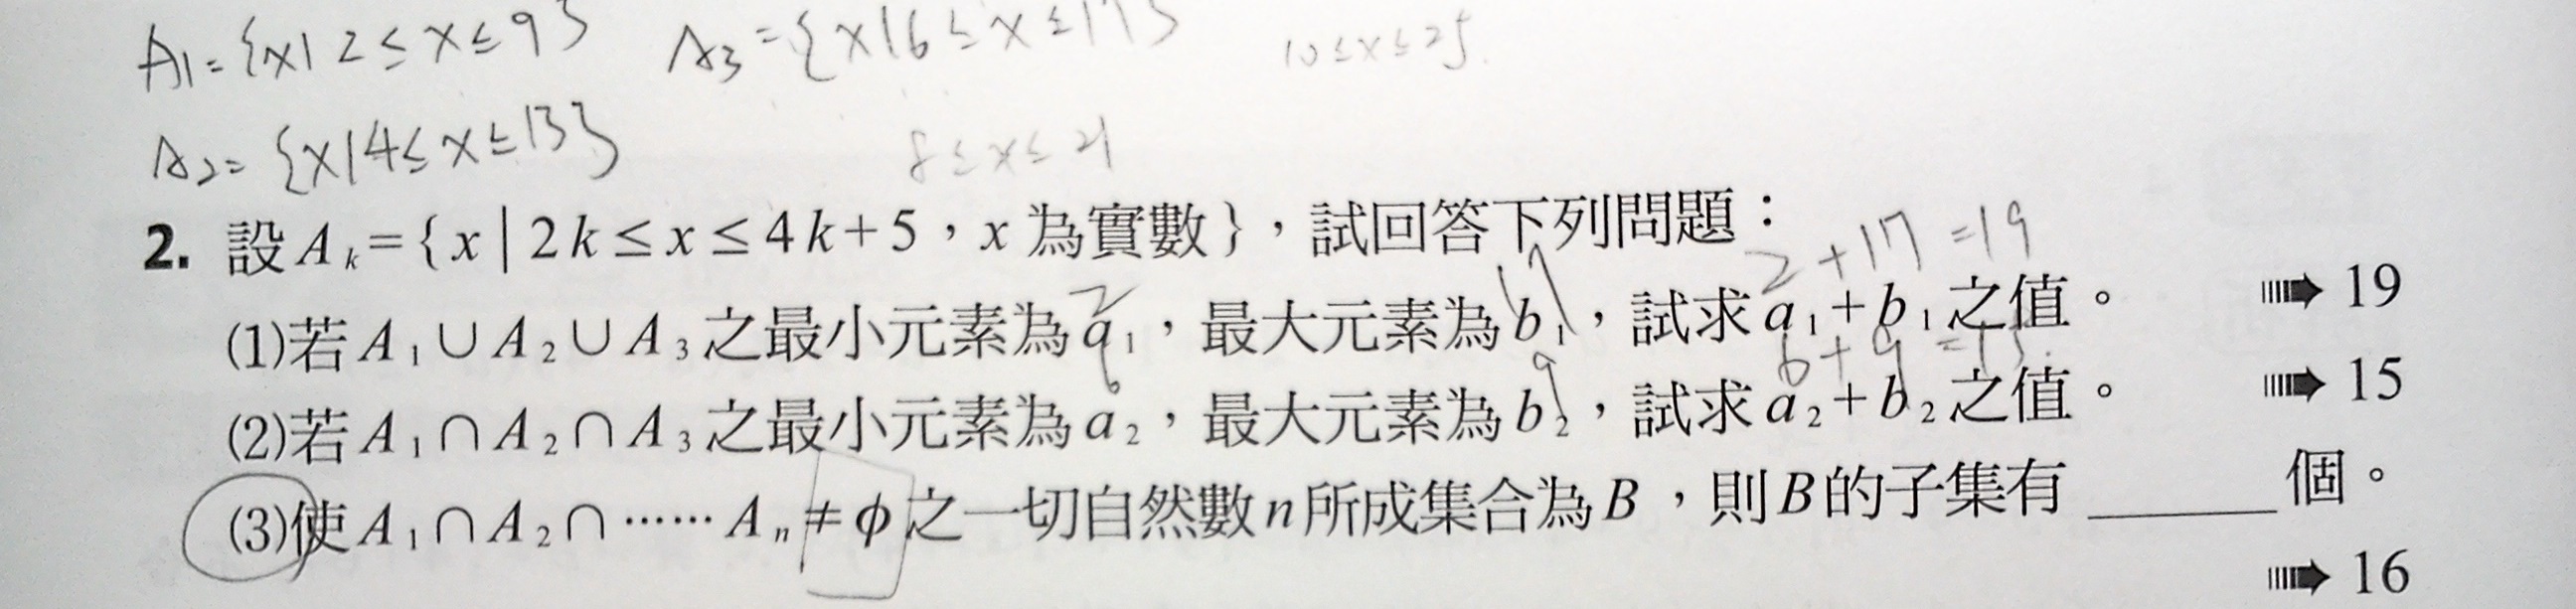 A1={x|2≤x≤9} A3={x|6≤x≤17} 10≤x≤25.
A2={x|4≤x≤13} 8≤x≤21
2. 設Aₖ={x|2k≤x≤4k+5，x為實數}，試回答下列問題：
2+17=19
2 17
(1)若A₁∪A₂∪A₃之最小元素為a₁，最大元素為b₁，試求a₁+b₁之值。 ➠ 19
6 9 6+9=15.
(2)若A₁∩A₂∩A₃之最小元素為a₂，最大元素為b₂，試求a₂+b₂之值。 ➠ 15
(3)使A₁∩A₂∩……Aₙ≠ϕ之一切自然數n所成集合為B，則B的子集有______個。
➠ 16